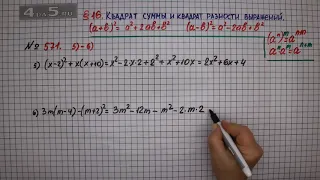 § 16. Квадрат суммы и квадрат разности выражений.
(a+b)² = a²+2ab+b² (a-b)² = a²-2ab+b²
№ 571. 5)-6)
(aⁿ)ᵐ = aⁿᵐ
aⁿaᵐ = aⁿ⁺ᵐ
5) (x-2)² + x(x+10) = x² - 2·x·2 + 2² + x² + 10x = 2x² + 6x + 4
6) 3m(m-4) - (m+2)² = 3m² - 12m - m² - 2·m·2